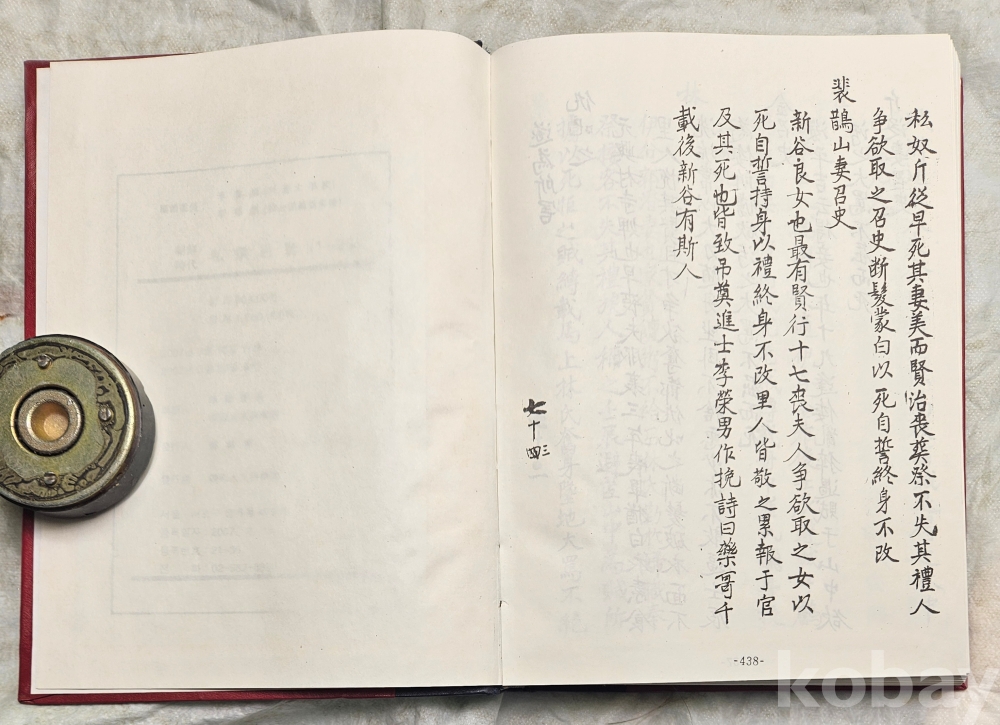 私奴斤從早死其妻美而賢治喪葬祭不失其禮人
争欲取之召史断髮蒙白以死自誓終身不改
裴鵲山妻召史
新谷良女也最有賢行十七喪夫人争欲取之女以
死自誓持身以禮終身不改里人皆敬之累報于官
及其死也皆致吊奠進士李榮男作挽詩曰藥哥千
載後新谷有斯人
七十四三
-438-
kobay